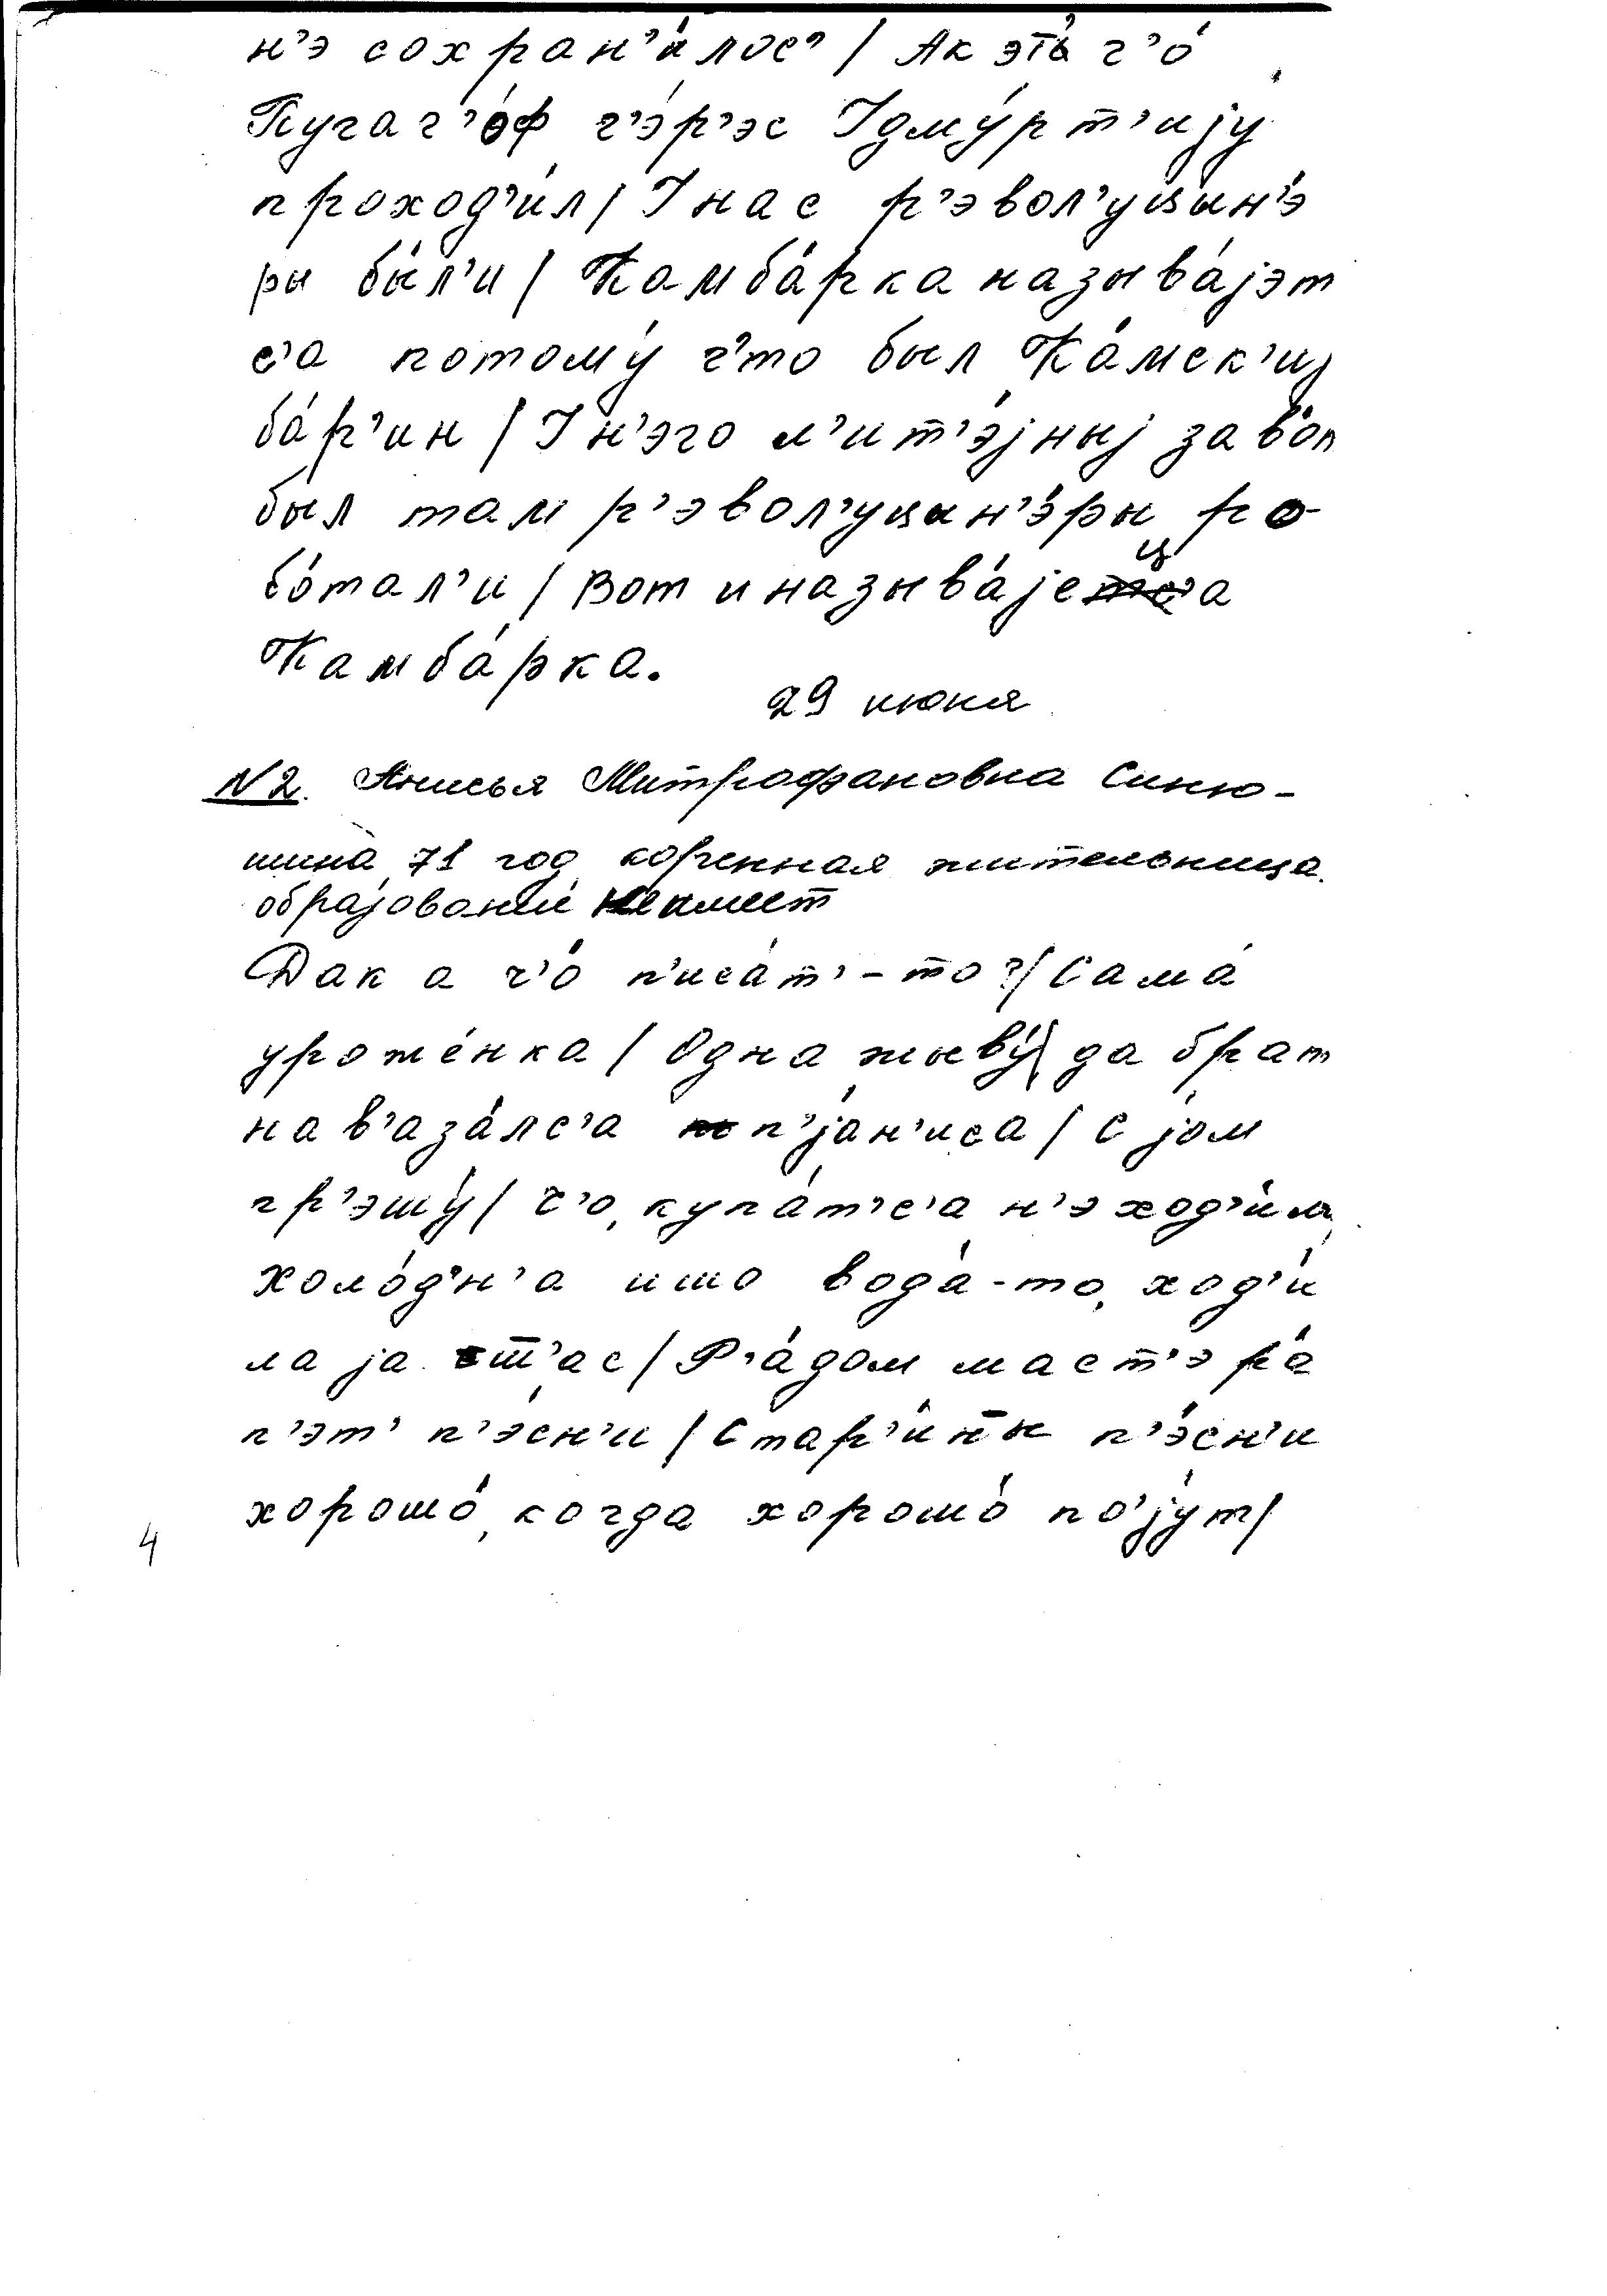 н’э сохран’и́лос’ / Ак эта́ ч’о́
Пугач’о́ф ч’э́р’эс Удму́рт’иjу
проход’и́л / У нас р’эвол’уцын’э́
ры бы́л’и / Камба́рка называ́jэт
с’а потому́ ч’то был Ка́мск’иj
ба́р’ин / У н’эго л’ит’э́jныj заво́т
был там р’эвол’уцын’э́ры ро-
бо́тал’и / Вот и называ́jец’а
Камба́рка.
29 июня
N2. Анисья Митрофановна Синю-
шина 71 год коренная жительница.
образования не имеет
Дак а ч’о́ п’иса́т’-то? / Сама́
уроже́нка / Одна жыву́ / да брат
нав’аза́лс’а п’jа́н’иса / С jом
гр’эшу́ / Ч’о, купа́т’с’а н’э ход’и́ла,
холо́д’н’а ишо вода́-то, ход’и́
ла jа шт’ас / Р’а́дом маст’эра́
п’эт’ п’э́сн’и / Стар’и́ны п’э́сн’и
хорошо́, когда хорошо́ по’jу́т /
4